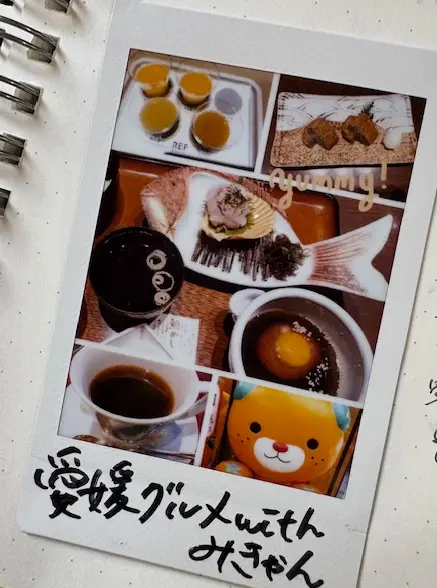 REF
yummy!
愛媛グルメwith
みきゃん